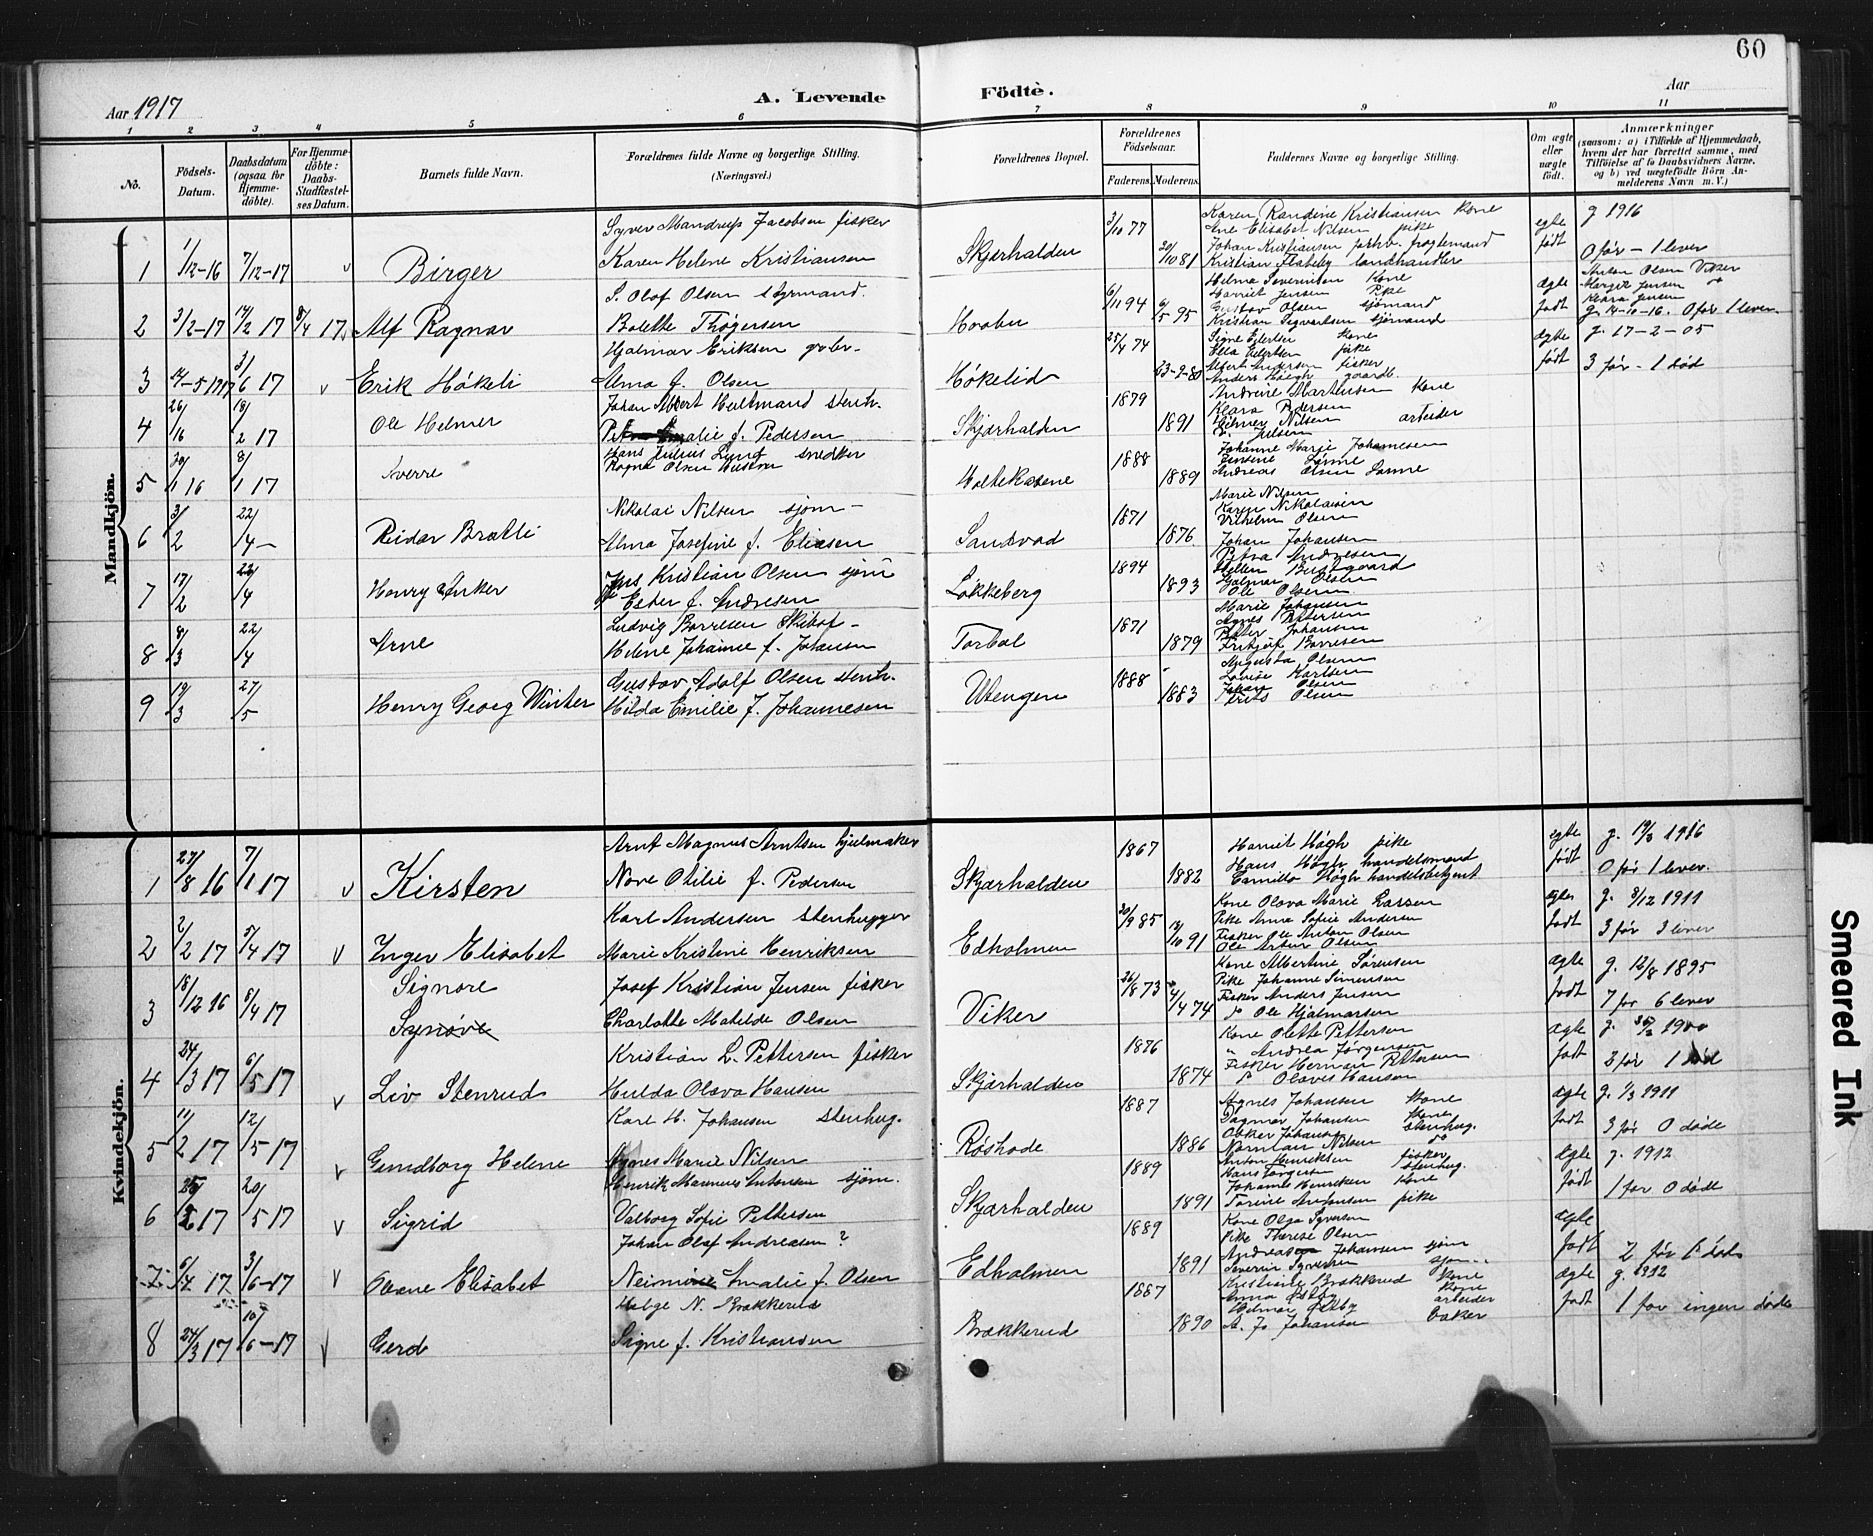 60
Aar 1917
A. Levende Födte.
Aar
1 2 3 4 5 6 7 8 9 10 11
No.
Födsels-Datum.
Daabsdatum (ogsaa for Hjemme-döbte).
For Hjemme-döbte: Daabs-Stadfæstel-ses Datum.
Barnets fulde Navn.
Forældrenes fulde Navne og borgerlige Stilling. (Næringsvei.)
Forældrenes Bopæl.
Forældrenes Födselsaar.
Faderens. Moderens.
Faddernes Navne og borgerlige Stilling.
Om ægte eller uægte födt.
Anmærkninger (saasom: a) i Tilfælde af Hjemmedaab, hvem der har forrettet samme, med Tilföielse af to Daabsvidners Navne, og b) ved uægtefödte Börn An-melderens Navn m. V.)
Mandkjön.
Syver Mandrup Jacobsen fisker 3/10 77 Karen Randine Kristiansen kone egte g 1916
Ane Elisabet Nilsen pike
1 1/12-16 7/12-17 v Birger Karen Helene Kristiansen Skjerhalden 20/10 81 Johan Kristiansen fragtemand født 0 før - 1 lever
Kristian Floberg landhandler
S. Olaf Olsen styrmand. 6/11 94 Helma Severinsen Kone ægte Anton Olsen Viker
Harriet Jensen Pike Margit Jensen
2 3/2-17 14/2 17 8/4 17 Alf Ragnar Bolette Thøgersen Hoabu 6/5 95 Gustav Olsen sjømand født Klara Jensen
Kristian Sigvartsen sjømand g. 14-10-16. 0 før 1 lever
Hjalmar Eriksen 25/4 74 Signe Eilertsen Kone ægte g. 17-2-05
Ella Eilertsen pike
3 14-5 1917 3/6 17 v Erik Håkeli Alma f. Olsen Høkelid 23-2-80 Albert Andersen fisker født 3 før - 1 død
Anders Høegh gaardb.
Johan Albert Hultmand stenh. 1879 Andrine Martinsen Kone
4 26/16 18/2 17 Ole Helmer Amalie f. Pedersen Skjærhalden 1891 Klara Pedersen
Hilmer Nilsen arbeider
Hans Julius Lund snedker 1888 Johanne Marie Johannesen
5 30/1 16 8/1 17 Sverre Ragna Olsen Hustru Holtekasene 1889 Andreas Olsen Sanne
Nikolai Nilsen sjøm- 1871 Marie Nilsen
Karen Nikolaisen
Vilhelm Olsen
6 3/2 22/4 - Reidar Bratli Alma Josefine f. Eliasen Sandvad 1876 Johan Johansen
Jens Kristian Olsen sjøm 1894 Petra Andresen
Hellen Bustgaard
7 17/2 22/4 Henry Anker Ester f. Andresen Løkkeberg 1893 Hjalmar Olsen
Ole Olsen
Ludvig Borresen Skibsf- 1871 Marie Johansen
Agnes Pettersen
8 8/3 22/4 Arne Helene Johanne f. Johansen Torbal 1879 Peter Johansen
Fritjof Borresen
Gustav Adolf Olsen stenh. 1888 Augusta Olsen
Lovise Karlsen
9 19/3 27/5 Henry Georg Winter Hilda Emilie f. Johannesen Utengen 1883 Johan Olsen
Frits Olsen
Kvindekjön.
Arnt Magnus Arntsen hjulmaker 1867 Harriet Høgh pike egte g. 19/3 1916
1 27/8 16 7/1 17 v Kirsten Nore Otilie f. Pedersen Skjærhalden 1882 Hans Høgh handelsmand født 0 før 1 lever.
Camillo Høgh handelsbetjent
Karl Andersen stenhugger 30/9 85 Kone Olava Marie Larsen ægte g. 3/12 1911
Pike Anna Sofie Andersen
2 2/2 17 5/4 17 v Inger Elisabet Marie Kristine Henriksen Edholmen 10 91 Fisker Ole Anton Olsen født 3 før 3 lever
Ole Artur Olsen
Signore Josef Kristian Jensen fisker 26/8 73 Kone Albertine Sørensen ægte g. 12/8 1895
Pike Johanne Simensen
3 18/12 16 8/4 17 Synøve Charlotte Matilde Olsen Viker 4/4 74 Fisker Anders Jensen født 7 før 6 lever
do Ole Hjalmarsen
Kristian L. Pettersen fisker 1876 Kone Olette Pettersen ægte g. 1900
" Andrea Jørgensen
4 24/3 17 6/5 17 v Liv Stenrud Hulda Olava Hansen Skjærhalden 1874 Fisker Herman Pettersen født 3 før 1 død
do Olaves Hansen
Karl H. Johansen stenhug. 1887 Agnes Johansen kone ægte g. 1/3 1911
Dagmar Johansen kone
5 11/2 17 12/5 17 v Gundborg Helene Agnes Marie Nilsen Røshode 1886 Oskar Johansen stenhug. født 3 før 0 døde
Norman Nilsen do
Henrik Marinius Antonsen sjøm. 1889 Anton Henriksen fisker ægte g. 1912
Hans Torgersen stenhug.
6 25/2 17 20/5 17 v Sigrid Valborg Sofie Pettersen Skjærhalden 1891 Johanne Henriksen kone født 1 før 0 døde
Torine Antonsen pike
Johan Olaf Andreasen ? 1889 Kone Olga Syversen ægte
Pike Therese Olsen
7 6/4 17 3/6-17 v Oleane Elisabet Amalie f. Olsen Edholmen 1891 Andreas Johansen sjøm født 2 før 1 død
Severin Syversen sjøm
Helge N. Brækkerud 1887 Kristiane Brækkerud kone ægte g. 1912
Anna Østby kone
8 24/3 17 10/6-17 v Gerd Signe f. Kristiansen Brækkerud 1890 Hilmar Østby arbeider født 1 før ingen døde
A. J. Johansen baker
Smeared Ink